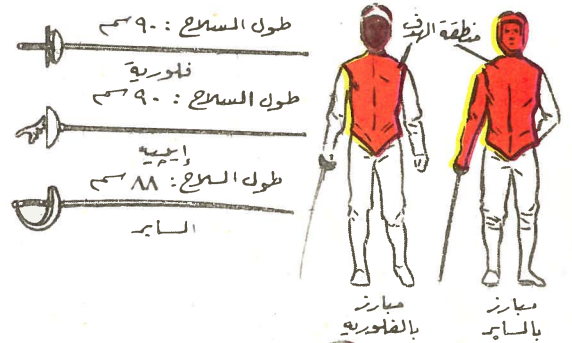 طول السلاح : ٩٠ سم
فلورية
طول السلاح : ٩٠ سم
إيپيه
طول السلاح : ٨٨ سم
السابر
منطقة الهدف
مبارز
بالفلوريه
مبارز
بالساپر